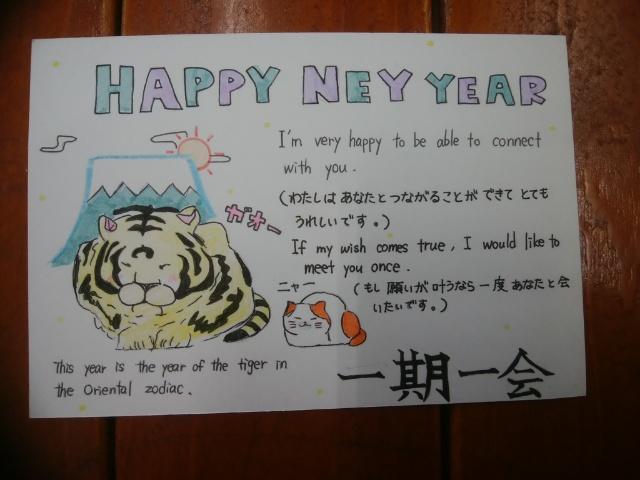 HAPPY NEY YEAR
I'm very happy to be able to connect
with you.
(わたしは あなたとつながることが できて とても
うれしいです。)
ガオー
If my wish comes true, I would like to
meet you once.
ニャー
(もし 願いが叶うなら 一度 あなたと会
いたいです。)
This year is the year of the tiger in
the Oriental zodiac.
一期一会